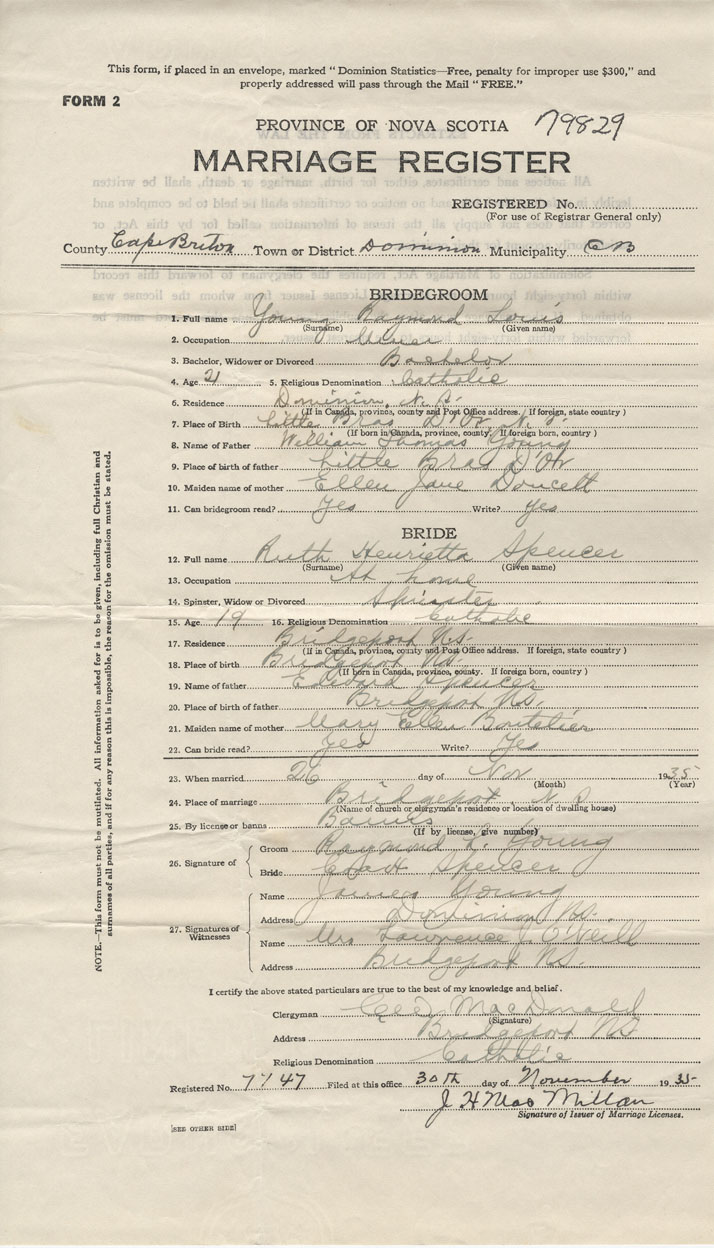 This form, if placed in an envelope, marked "Dominion Statistics—Free, penalty for improper use $300," and
properly addressed will pass through the Mail "FREE."
FORM 2
PROVINCE OF NOVA SCOTIA 79829
MARRIAGE REGISTER
REGISTERED No.
(For use of Registrar General only)
County Cape Briton Town or District Dominion Municipality C B
BRIDEGROOM
1. Full name Young Raymond Louis
(Surname) (Given name)
2. Occupation Miner
3. Bachelor, Widower or Divorced Bachelor
4. Age 21 5. Religious Denomination Catholic
6. Residence Dominion, N. S.
(If in Canada, province, county and Post Office address. If foreign, state country)
7. Place of Birth Little Bras D'Or N. S.
(If born in Canada, province, county. If foreign born, country)
8. Name of Father William Thomas Young
9. Place of birth of father Little Bras D'Or
10. Maiden name of mother Ellen Jane Doucett
11. Can bridegroom read? Yes Write? Yes
BRIDE
12. Full name Ruth Henrietta Spencer
(Surname) (Given name)
13. Occupation At home
14. Spinster, Widow or Divorced Spinster
15. Age 19 16. Religious Denomination Catholic
17. Residence Bridgeport N.S.
(If in Canada, province, county and Post Office address. If foreign, state country)
18. Place of birth Bridgeport N.S.
(If born in Canada, province, county. If foreign born, country)
19. Name of father Edward Spencer
20. Place of birth of father Bridgeport N.S.
21. Maiden name of mother Mary Ellen Boutelier
22. Can bride read? Yes Write? Yes
23. When married 26 day of Nov 1935
(Month) (Year)
24. Place of marriage Bridgeport, N S
(Name of church or clergyman's residence or location of dwelling house)
25. By license or banns Banns
(If by license, give number)
26. Signature of
Groom Raymond L. Young
Bride Spencer
27. Signatures of Witnesses
Name James Young
Address Dominion N.S.
Name Mrs Lawrence J. O'Neill
Address Bridgeport N.S.
I certify the above stated particulars are true to the best of my knowledge and belief.
Clergyman MacDonald
(Signature)
Address Bridgeport N.S
Religious Denomination Catholic
Registered No. 7747 Filed at this office 30th day of November 1935
J H MacMillan
Signature of Issuer of Marriage Licenses.
[SEE OTHER SIDE]
NOTE.—This form must not be mutilated. All information asked for is to be given, including full Christian and
surnames of all parties, and if for any reason this is impossible, the reason for the omission must be stated.